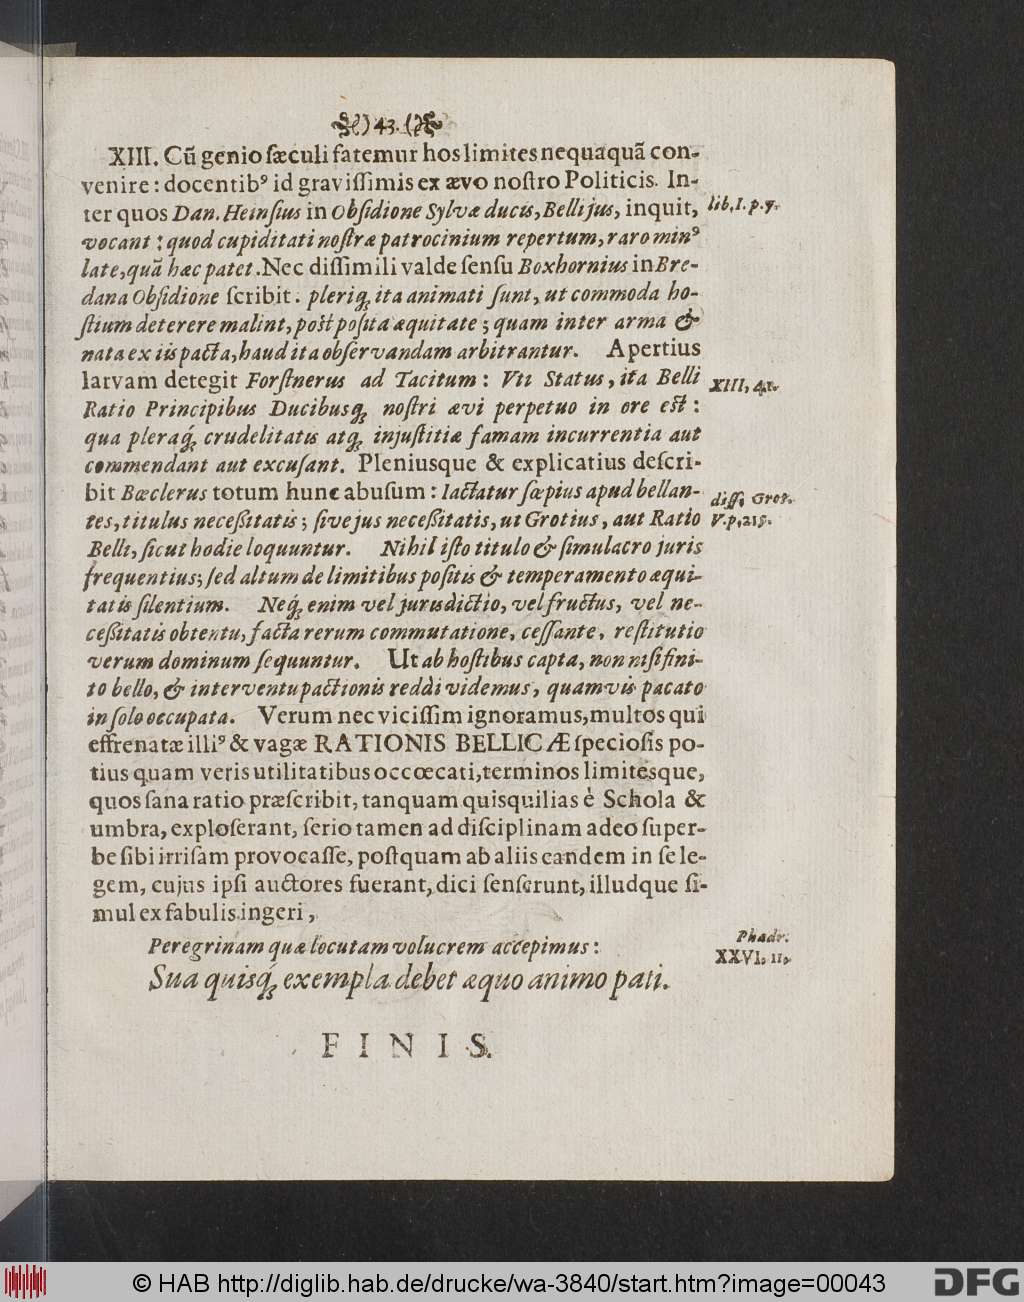 ) 43. (
XIII. Cũ genio ſæculi fatemur hos limites nequaquã con-
venire: docentibꝰ id graviſſimis ex ævo noſtro Politicis. In-
ter quos Dan. Heinſius in Obſidione Sylvæ ducis, Belli jus, inquit, lib. I. p. 7.
vocant: quod cupiditati noſtræ patrocinium repertum, raro minꝰ
late, quã hæc patet. Nec diſſimili valde ſenſu Boxhornius in Bre-
dana Obſidione ſcribit. pleriq́; ita animati ſunt, ut commoda ho-
ſtium deterere malint, poſt poſita æquitate; quam inter arma &
nata ex iis pacta, haud ita obſervandam arbitrantur. Apertius
larvam detegit Forſtnerus ad Tacitum: Vti Status, ita Belli XIII, 41.
Ratio Principibus Ducibusq́; noſtri ævi perpetuo in ore est:
qua pleraq́; crudelitatis atq́; injuſtitiæ famam incurrentia aut
commendant aut excuſant. Pleniusque & explicatius deſcri-
bit Bœclerus totum hunc abuſum: Iactatur ſæpius apud bellan- diſſ. Grot.
tes, titulus neceſſitatis; ſive jus neceſſitatis, ut Grotius, aut Ratio V. p. 215.
Belli, ſicut hodie loquuntur. Nihil iſto titulo & ſimulacro juris
frequentius; ſed altum de limitibus poſitis & temperamento æqui-
tatis ſilentium. Neq́; enim vel jurisdictio, vel fructus, vel ne-
ceſſitatis obtentu, facta rerum commutatione, ceſſante, reſtitutio
verum dominum ſequuntur. Ut ab hoſtibus capta, non niſi fini-
to bello, & interventu pactionis reddi videmus, quamvis pacato
in ſolo occupata. Verum nec viciſſim ignoramus, multos qui
effrenatæ illiꝰ & vagæ RATIONIS BELLICÆ ſpecioſis po-
tius quam veris utilitatibus occœcati, terminos limitesque,
quos ſana ratio præſcribit, tanquam quisquilias è Schola &
umbra, exploſerant, ſerio tamen ad diſciplinam adeo ſuper-
be ſibi irriſam provocaſſe, poſtquam ab aliis eandem in ſe le-
gem, cujus ipſi auctores fuerant, dici ſenſerunt, illudque ſi-
mul ex fabulis ingeri,
Peregrinam quæ locutam volucrem accepimus: Phædr.
Sua quisq́; exempla debet æquo animo pati. XXVI. 11.
FINIS.
© HAB http://diglib.hab.de/drucke/wa-3840/start.htm?image=00043
DFG